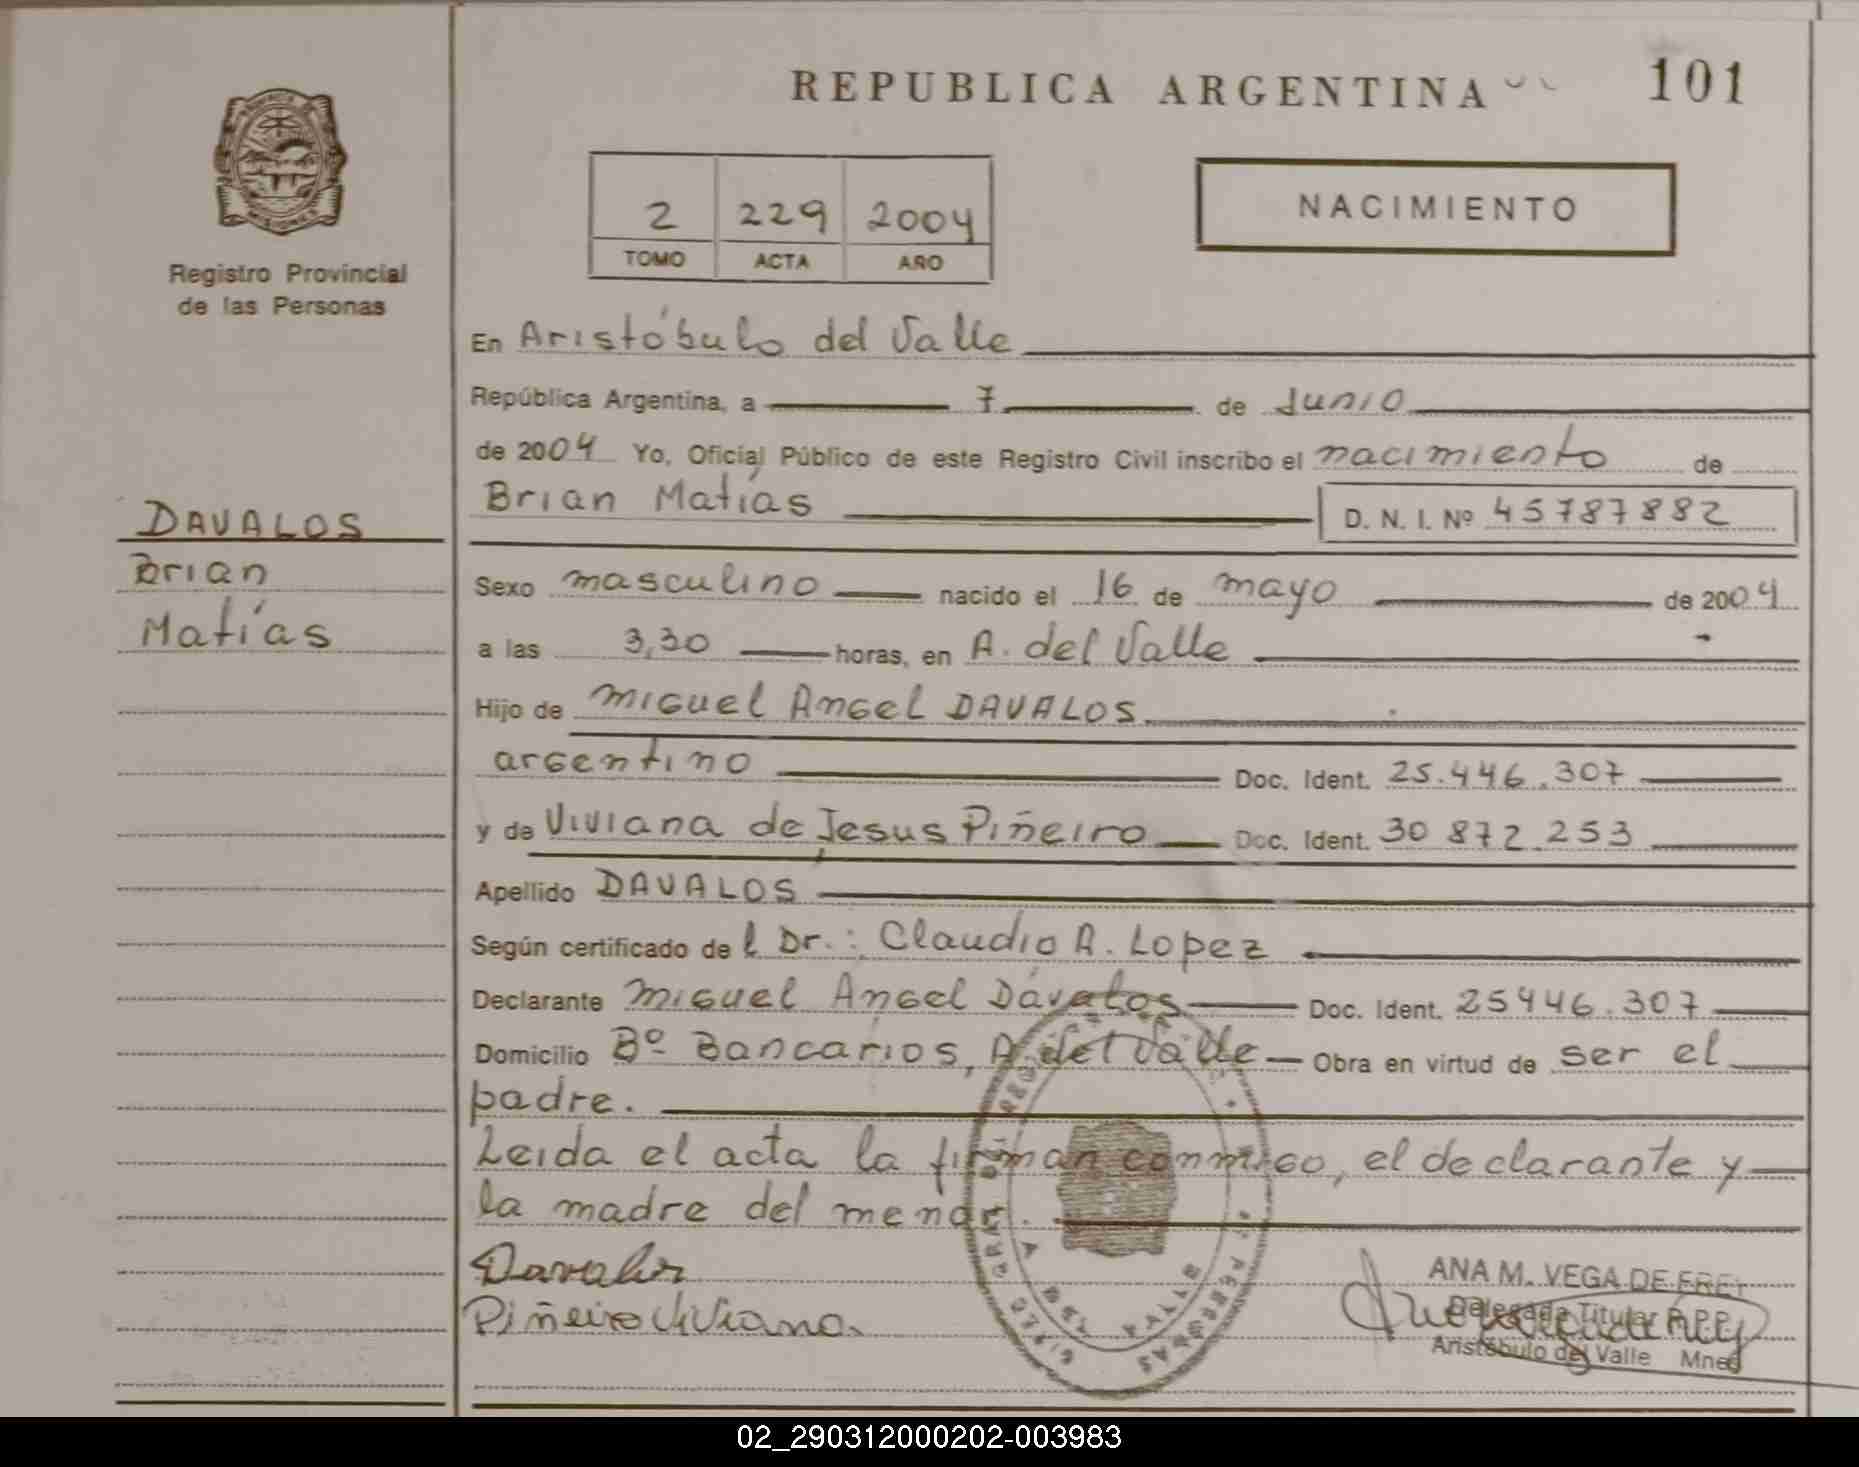 REPUBLICA ARGENTINA
101
2 229 2004
TOMO ACTA AÑO
NACIMIENTO
Registro Provincial
de las Personas
DAVALOS
Brian
Matías
En Aristóbulo del Valle
República Argentina, a 7 de Junio
de 2004 Yo, Oficial Público de este Registro Civil inscribo el nacimiento de
Brian Matías D. N. I. Nº 45787882
Sexo masculino nacido el 16 de mayo de 2004
a las 3,30 horas, en A. del Valle
Hijo de Miguel Angel DAVALOS
argentino Doc. Ident. 25.446.307
y de Viviana de Jesus Piñeiro Doc. Ident. 30 872.253
Apellido DAVALOS
Según certificado de l Dr.: Claudio A. Lopez
Declarante Miguel Angel Dávalos Doc. Ident. 25446.307
Domicilio Bº Bancarios, A. del Valle Obra en virtud de ser el
padre.
Leida el acta la firman conmigo, el declarante y
la madre del menor.
Davalos
Piñeiro Viviana
ANA M. VEGA DE FREI
Delegada Titular R.P.P.
Aristóbulo del Valle Mnes
02_290312000202-003983